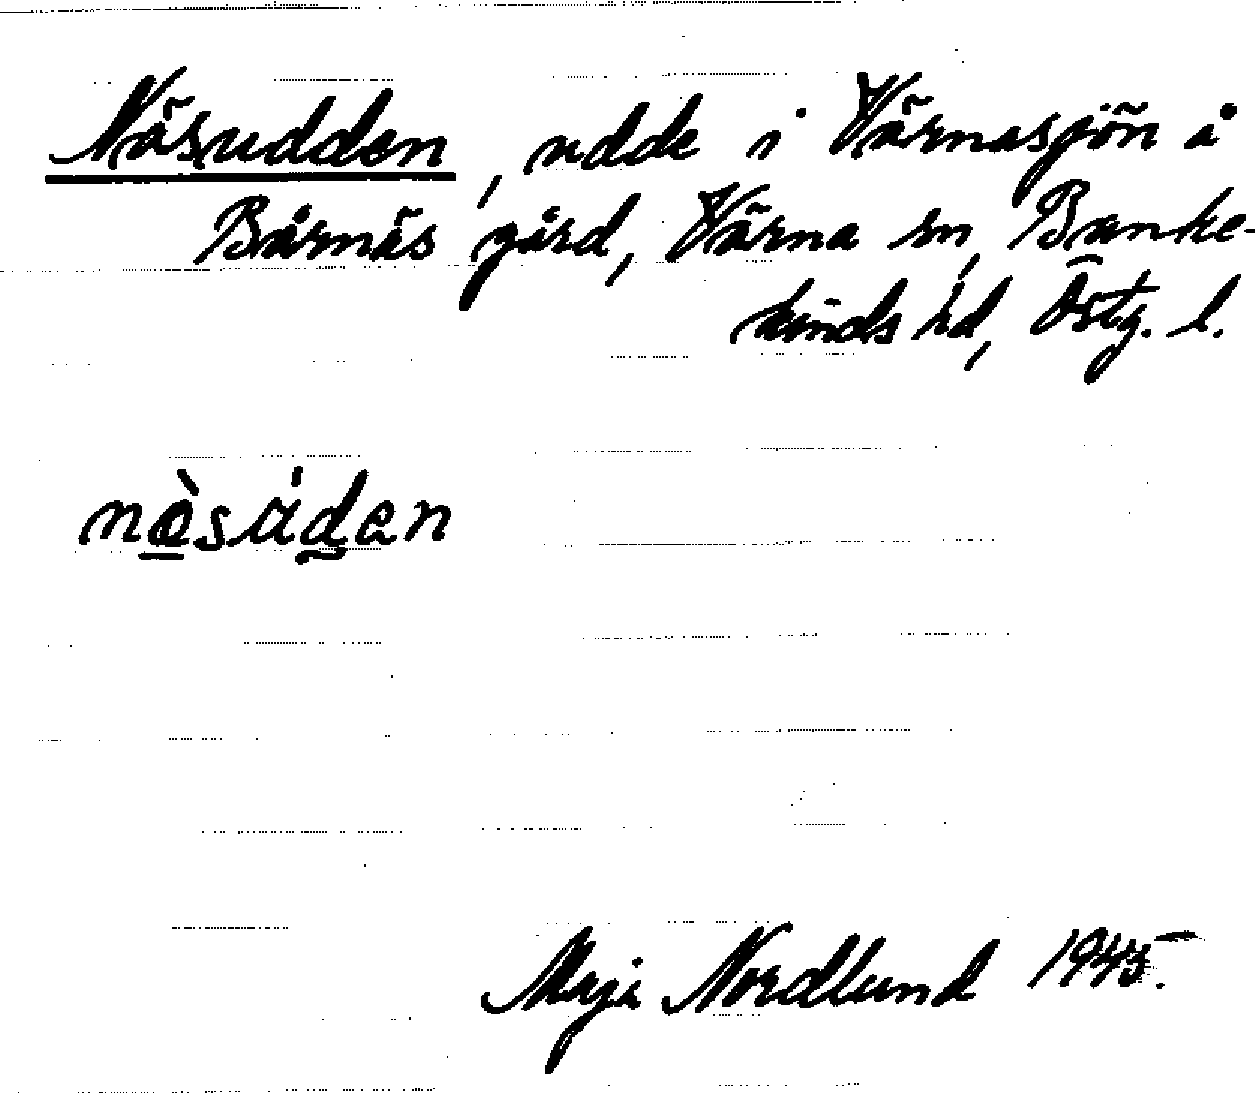 Näsudden, udde i Värnasjön å
Bårnäs gård, Värna sn, Banke-
kinds hd, Östg. l.
Maja Nordlund 1945.